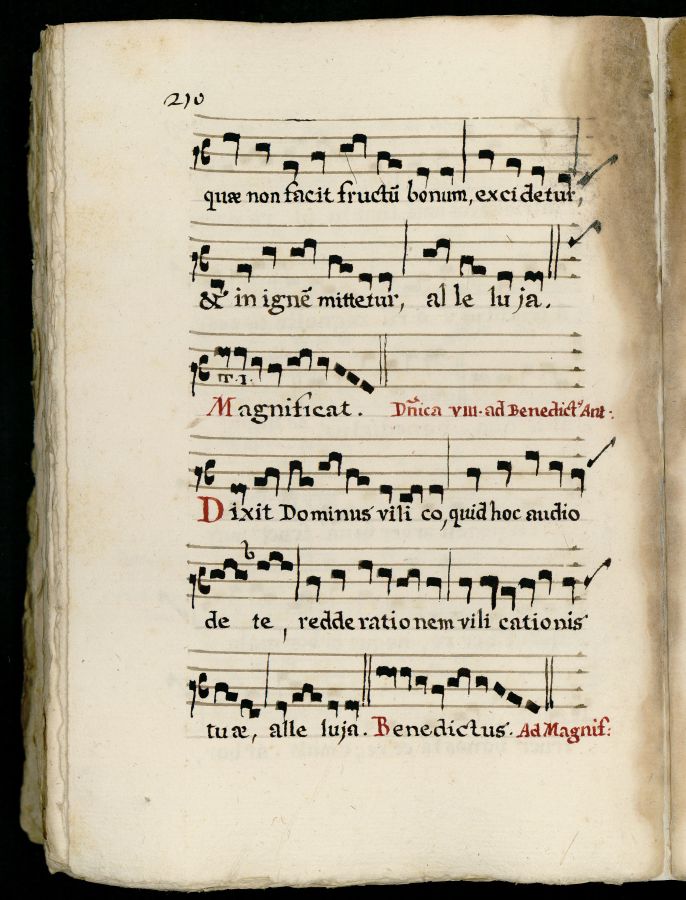 210
quæ non facit fructũ bonum, excidetur,
& in ignẽ mittetur, al le lu ja.
T. I.
Magnificat. Dñica VIII. ad Benedict⁹ Ant:
Dixit Dominus vili co, quid hoc audio
b
de te, redde rationem vili cationis
tuæ, alle luja. Benedictus. Ad Magnif: